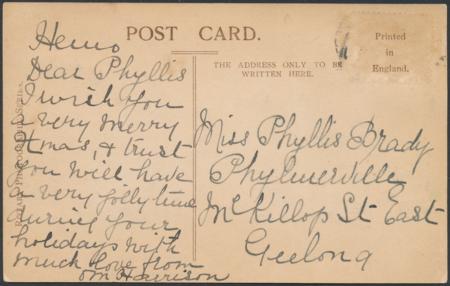 POST CARD.
THE ADDRESS ONLY TO BE
WRITTEN HERE.
Printed
in
England.
Hemo
Dear Phyllis
I wish you
a very merry
Xmas, & trust
you will have
a very jolly time
during your
holidays with
much love from
Harrison
Miss Phyllis Brady
Phylmerville
McKillop St East
Geelong